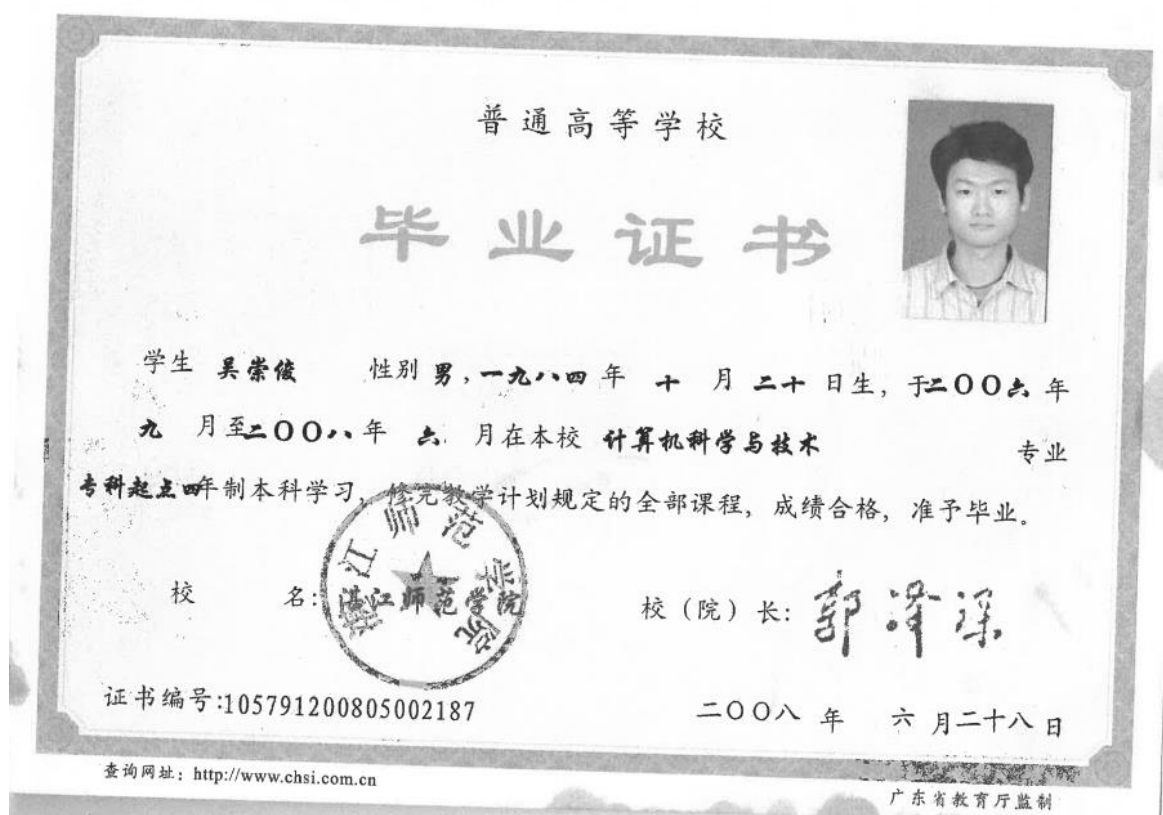 普通高等学校
毕业证书
学生 吴崇俊 性别 男，一九八四 年 十 月 二十 日生，于二〇〇六 年
九 月至二〇〇八年 六 月在本校 计算机科学与技术 专业
专科起点四年制本科学习，修完教学计划规定的全部课程，成绩合格，准予毕业。
校 名：湛江师范学院
湛江师范学院
校（院）长：郭泽深
证书编号:105791200805002187
二〇〇八 年 六 月二十八日
查询网址：http://www.chsi.com.cn
广东省教育厅监制